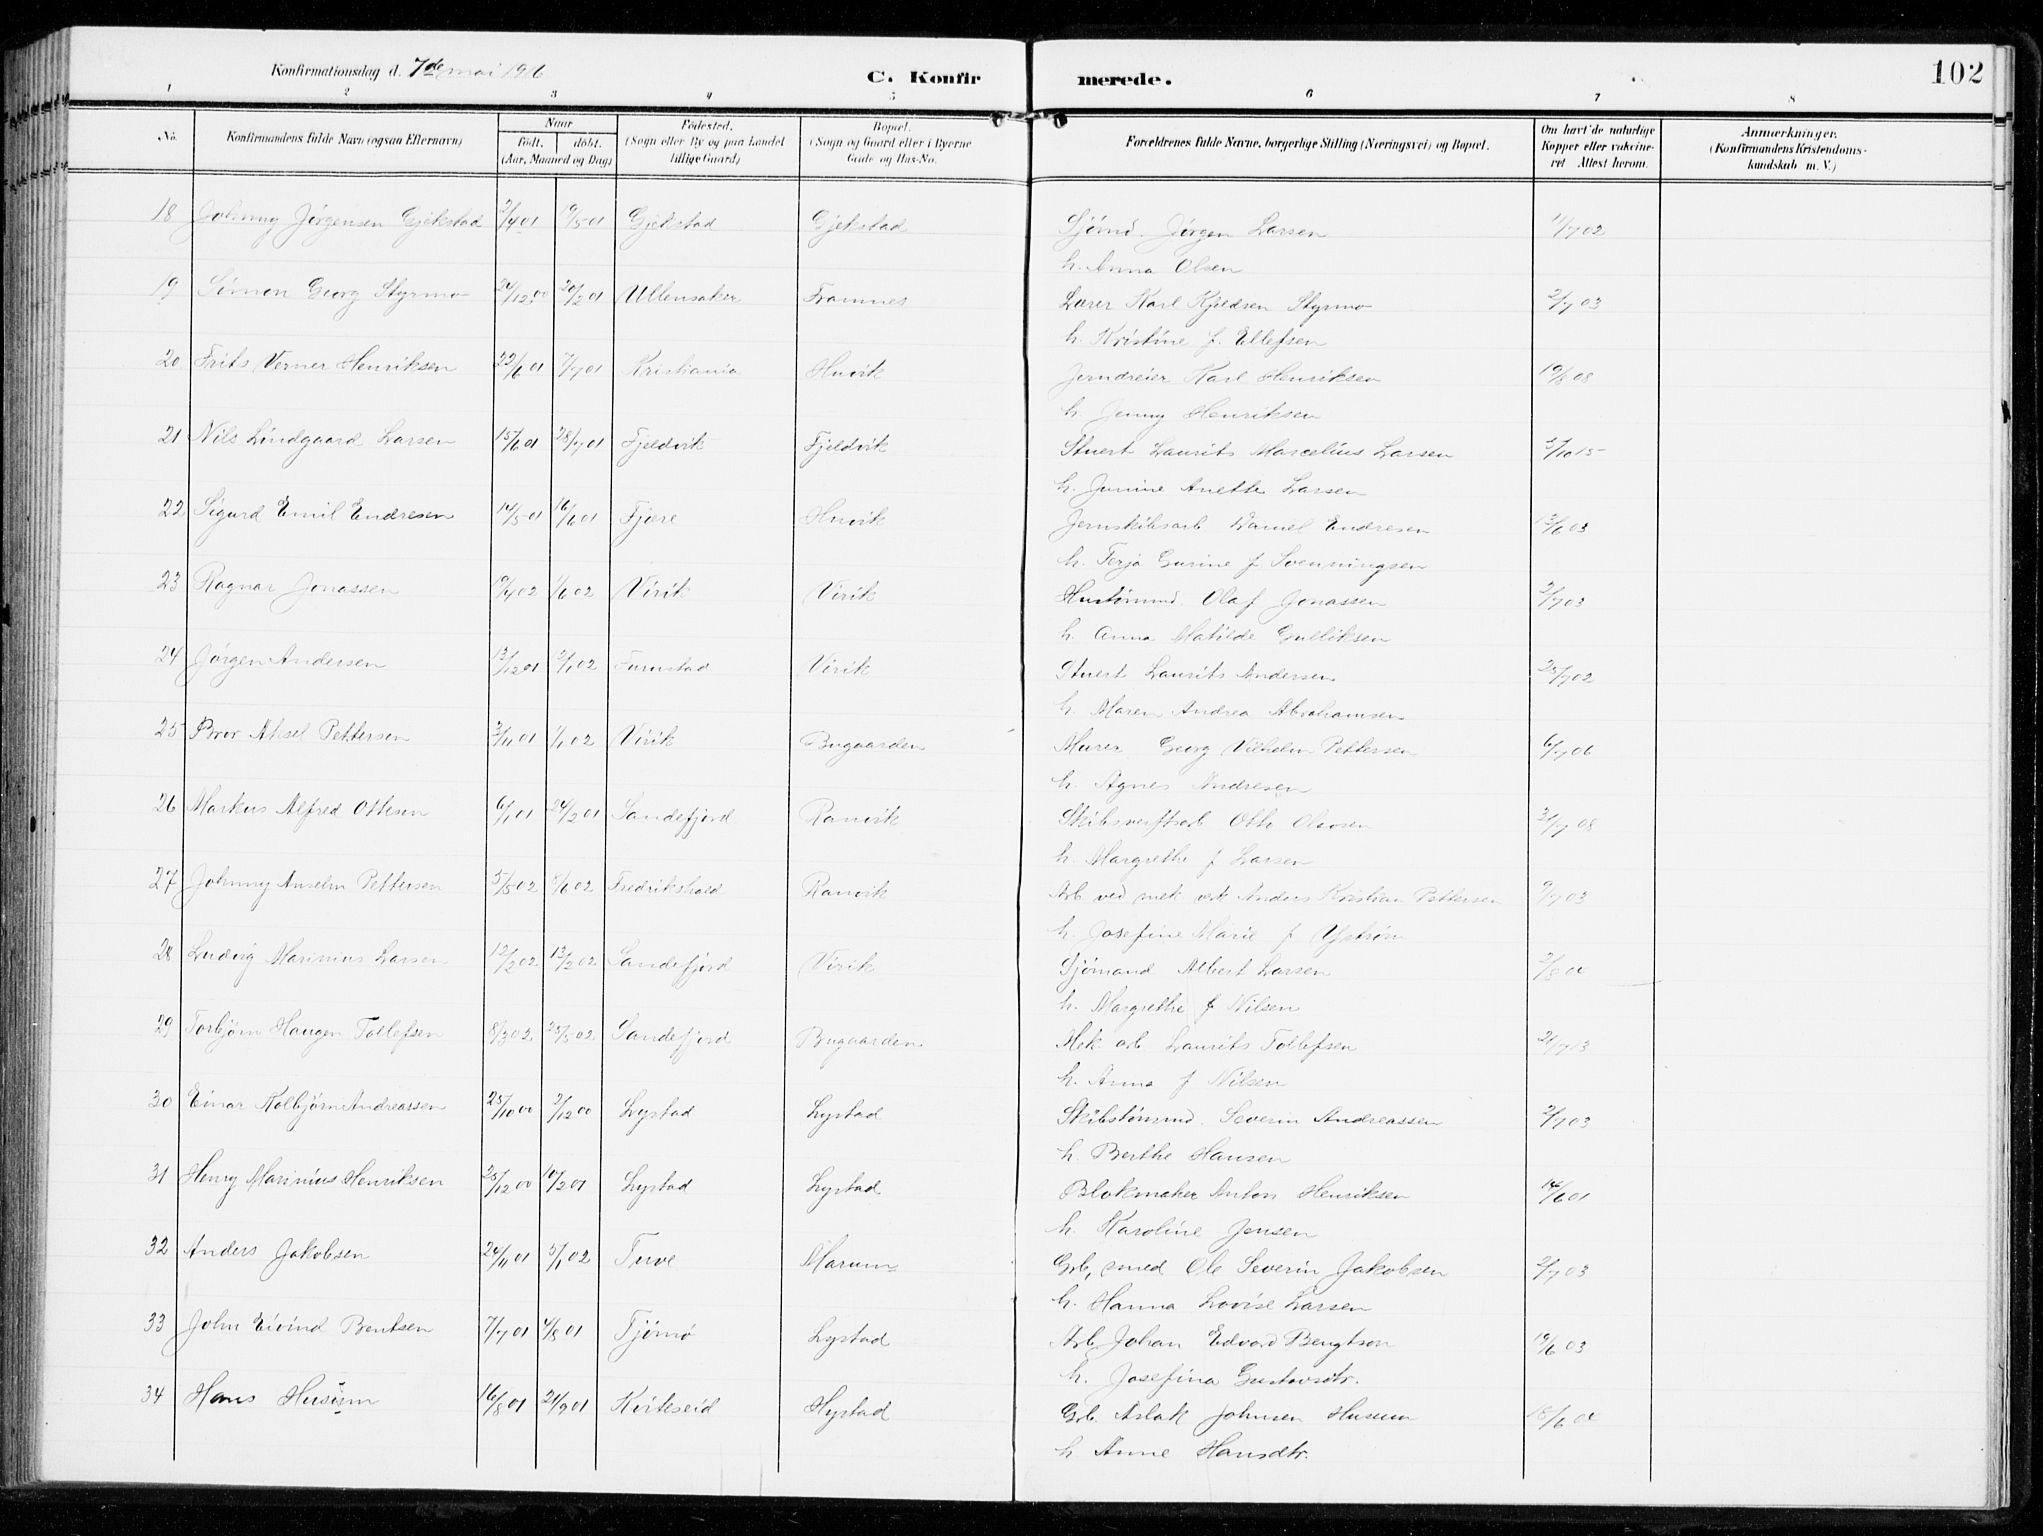 Konfirmationsdag d. 7de mai 1916
C. Konfirmerede.
102
1 2 3 4 5 6 7 8
No. Konfirmandens fulde Navn (ogsaa Efternavn) Naar født. døbt. (Aar, Maaned og Dag) Fødested. (Sogn eller By og paa Landet tillige Gaard) Bopæl. (Sogn og Gaard eller i Byerne Gade og Hus-No. Forældrenes fulde Navne, borgerlige Stilling (Næringsvei) og Bopæl. Om havt de naturlige Kopper eller vakcineret Attest herom. Anmærkninger. (Konfirmandens Kristendomskundskab m. V.)
18 Johnny Jörgensen Gjekstad 2/4 01 19/5 01 Gjekstad Gjekstad Sjömd. Jörgen Larsen 11/7 02
h. Anna Olsen
19 Simon Georg Styrmo 24/12 00 20/2 01 Ullensaker Framnes Lærer Karl Kjeldsen Styrmo 2/7 03
h. Kristine f. Ellefsen
20 Frits Verner Henriksen 22/6 01 7/7 01 Kristiania Huvik Jerndreier Karl Henriksen 19/8 08
h. Jenny Henriksen
21 Nils Lindgaard Larsen 15/6 01 28/7 01 Fjeldvik Fjeldvik Stuert Laurits Marcelius Larsen 3/10 15
h. Junine Anette Larsen
22 Sigurd Emil Endresen 14/5 01 16/6 01 Fjære Huvik Jernskibsarb Daniel Endresen 13/6 03
h. Terja Gurine f Svenningsen
23 Ragnar Jonassen 19/4 02 1/6 02 Virik Virik Hustömmd. Olaf Jonassen 2/7 03
h. Anna Matilde Gulliksen
24 Jörgen Andersen 13/12 01 2/1 02 Furustad Virik Stuert Laurits Andersen 25/7 02
h. Maren Andrea Abrahamsen
25 Bror Aksel Pettersen 3/11 01 1/1 02 Virik Bugaarden Murer Georg Vilhelm Pettersen 6/7 06
h. Agnes Andresen
26 Markus Alfred Ottesen 6/1 01 24/2 01 Sandefjord Ranvik Skibsverftsarb Otto Olavsen 31/7 08
h. Margrethe f Larsen
27 Johnny Anselm Pettersen 5/5 02 8/6 02 Fredrikshald Ranvik Arb ved mek verk Anders Kristian Pettersen 9/7 03
h. Josefine Marie f Yström
28 Ludvig Marinius Larsen 12/2 02 13/2 02 Sandefjord Virik Sjömand Albert Larsen
h. Margrethe f Nilsen
29 Torbjörn Haugen Tollefsen 8/3 02 25/5 02 Sandefjord Bugaarden Mek. arb Laurits Tollefsen
h. Anna f Nilsen
30 Einar Kolbjörn Andreassen 25/10 00 2/12 00 Lystad Lystad Skibstömmd. Severin Andreassen 2/7 03
h. Berthe Hansen
31 Henry Marinius Henriksen 25/12 00 10/2 01 Lystad Lystad Blokmaker Anton Henriksen 14/6 01
h. Karoline Jensen
32 Anders Jakobsen 24/11 01 5/1 02 Tuve Marum Grb, smed Ole Severin Jakobsen 2/7 03
h. Hanna Lovise Larsen
33 John Eivind Bentsen 7/7 01 4/8 01 Tjömö Lystad Arb Johan Edvard Bengtson 19/6 03
h. Josefina Gustavsdtr.
34 Hans Husum 16/8 01 21/9 01 Kviteseid Hystad Grb. Aslak Johnsen Husum
h Anne Hansdtr.